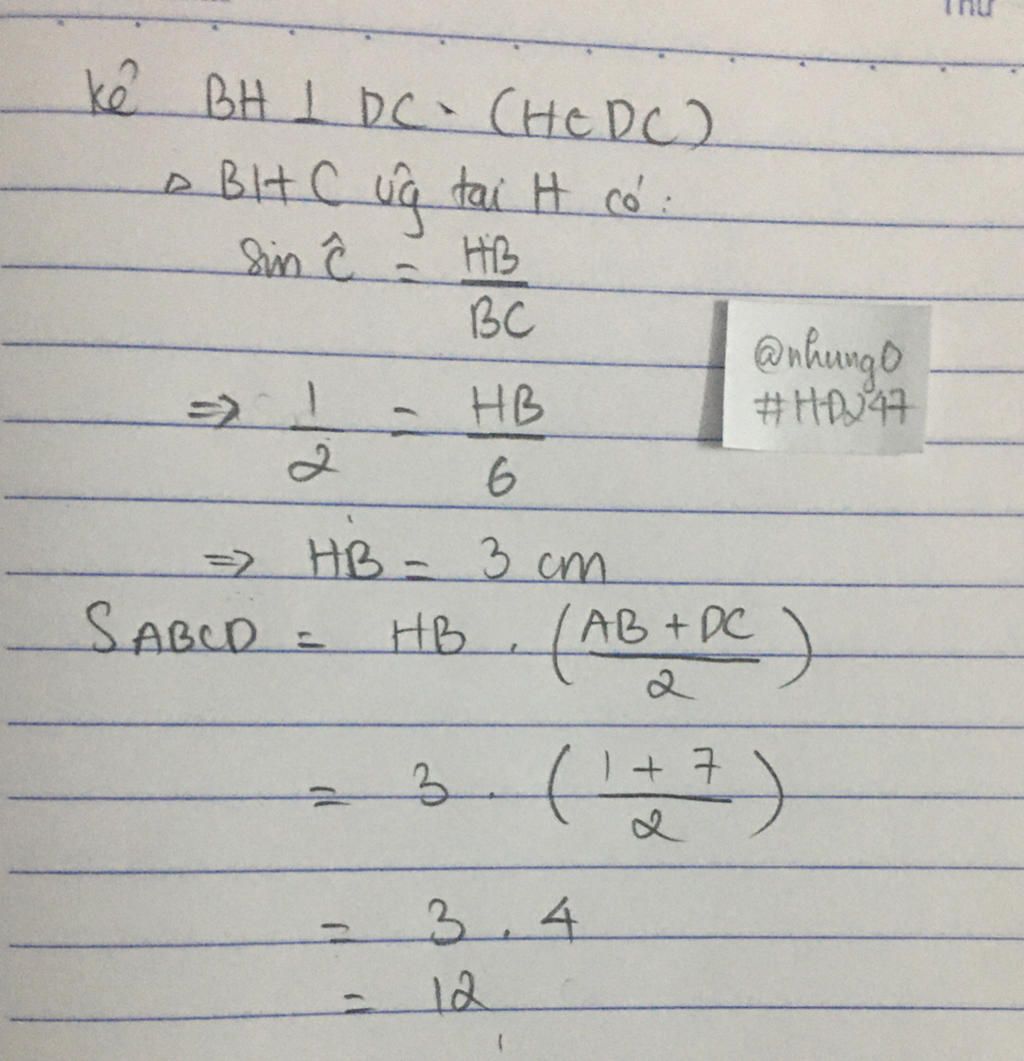 Thứ
Kẻ BH ⊥ DC. (H∈DC)
△ BHC vg tại H có:
Sin Ĉ = HB/BC
⇒ 1/2 = HB/6
⇒ HB = 3 cm
S ABCD = HB . (AB + DC / 2)
= 3 . (1 + 7 / 2)
= 3 . 4
= 12
@nhung0